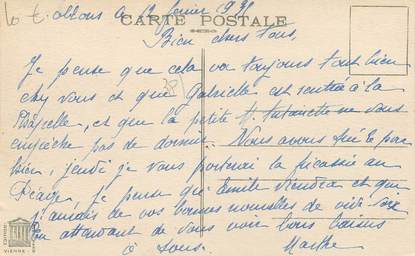 CARTE POSTALE
Bien chers tous,
Je pense que cela va toujours tout bien
chez vous et que Gabrielle est rentrée à la
et que la petite ne vous
empêche pas de dormir. Nous avons tué le porc
bien, jeudi je vous porterai la fricassée au
Péage, je pense que Emile viendra et que
j'aurais de vos bonnes nouvelles de vive voix
En attendant de vous voir bons baisers
à tous.
Marthe
VIENNE